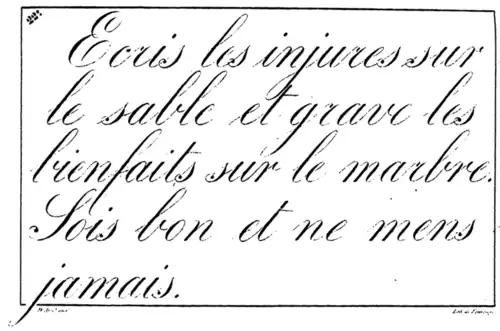 22e
Ecris les injures sur
le sable et grave les
bienfaits sur le marbre.
Sois bon et ne mens
jamais.